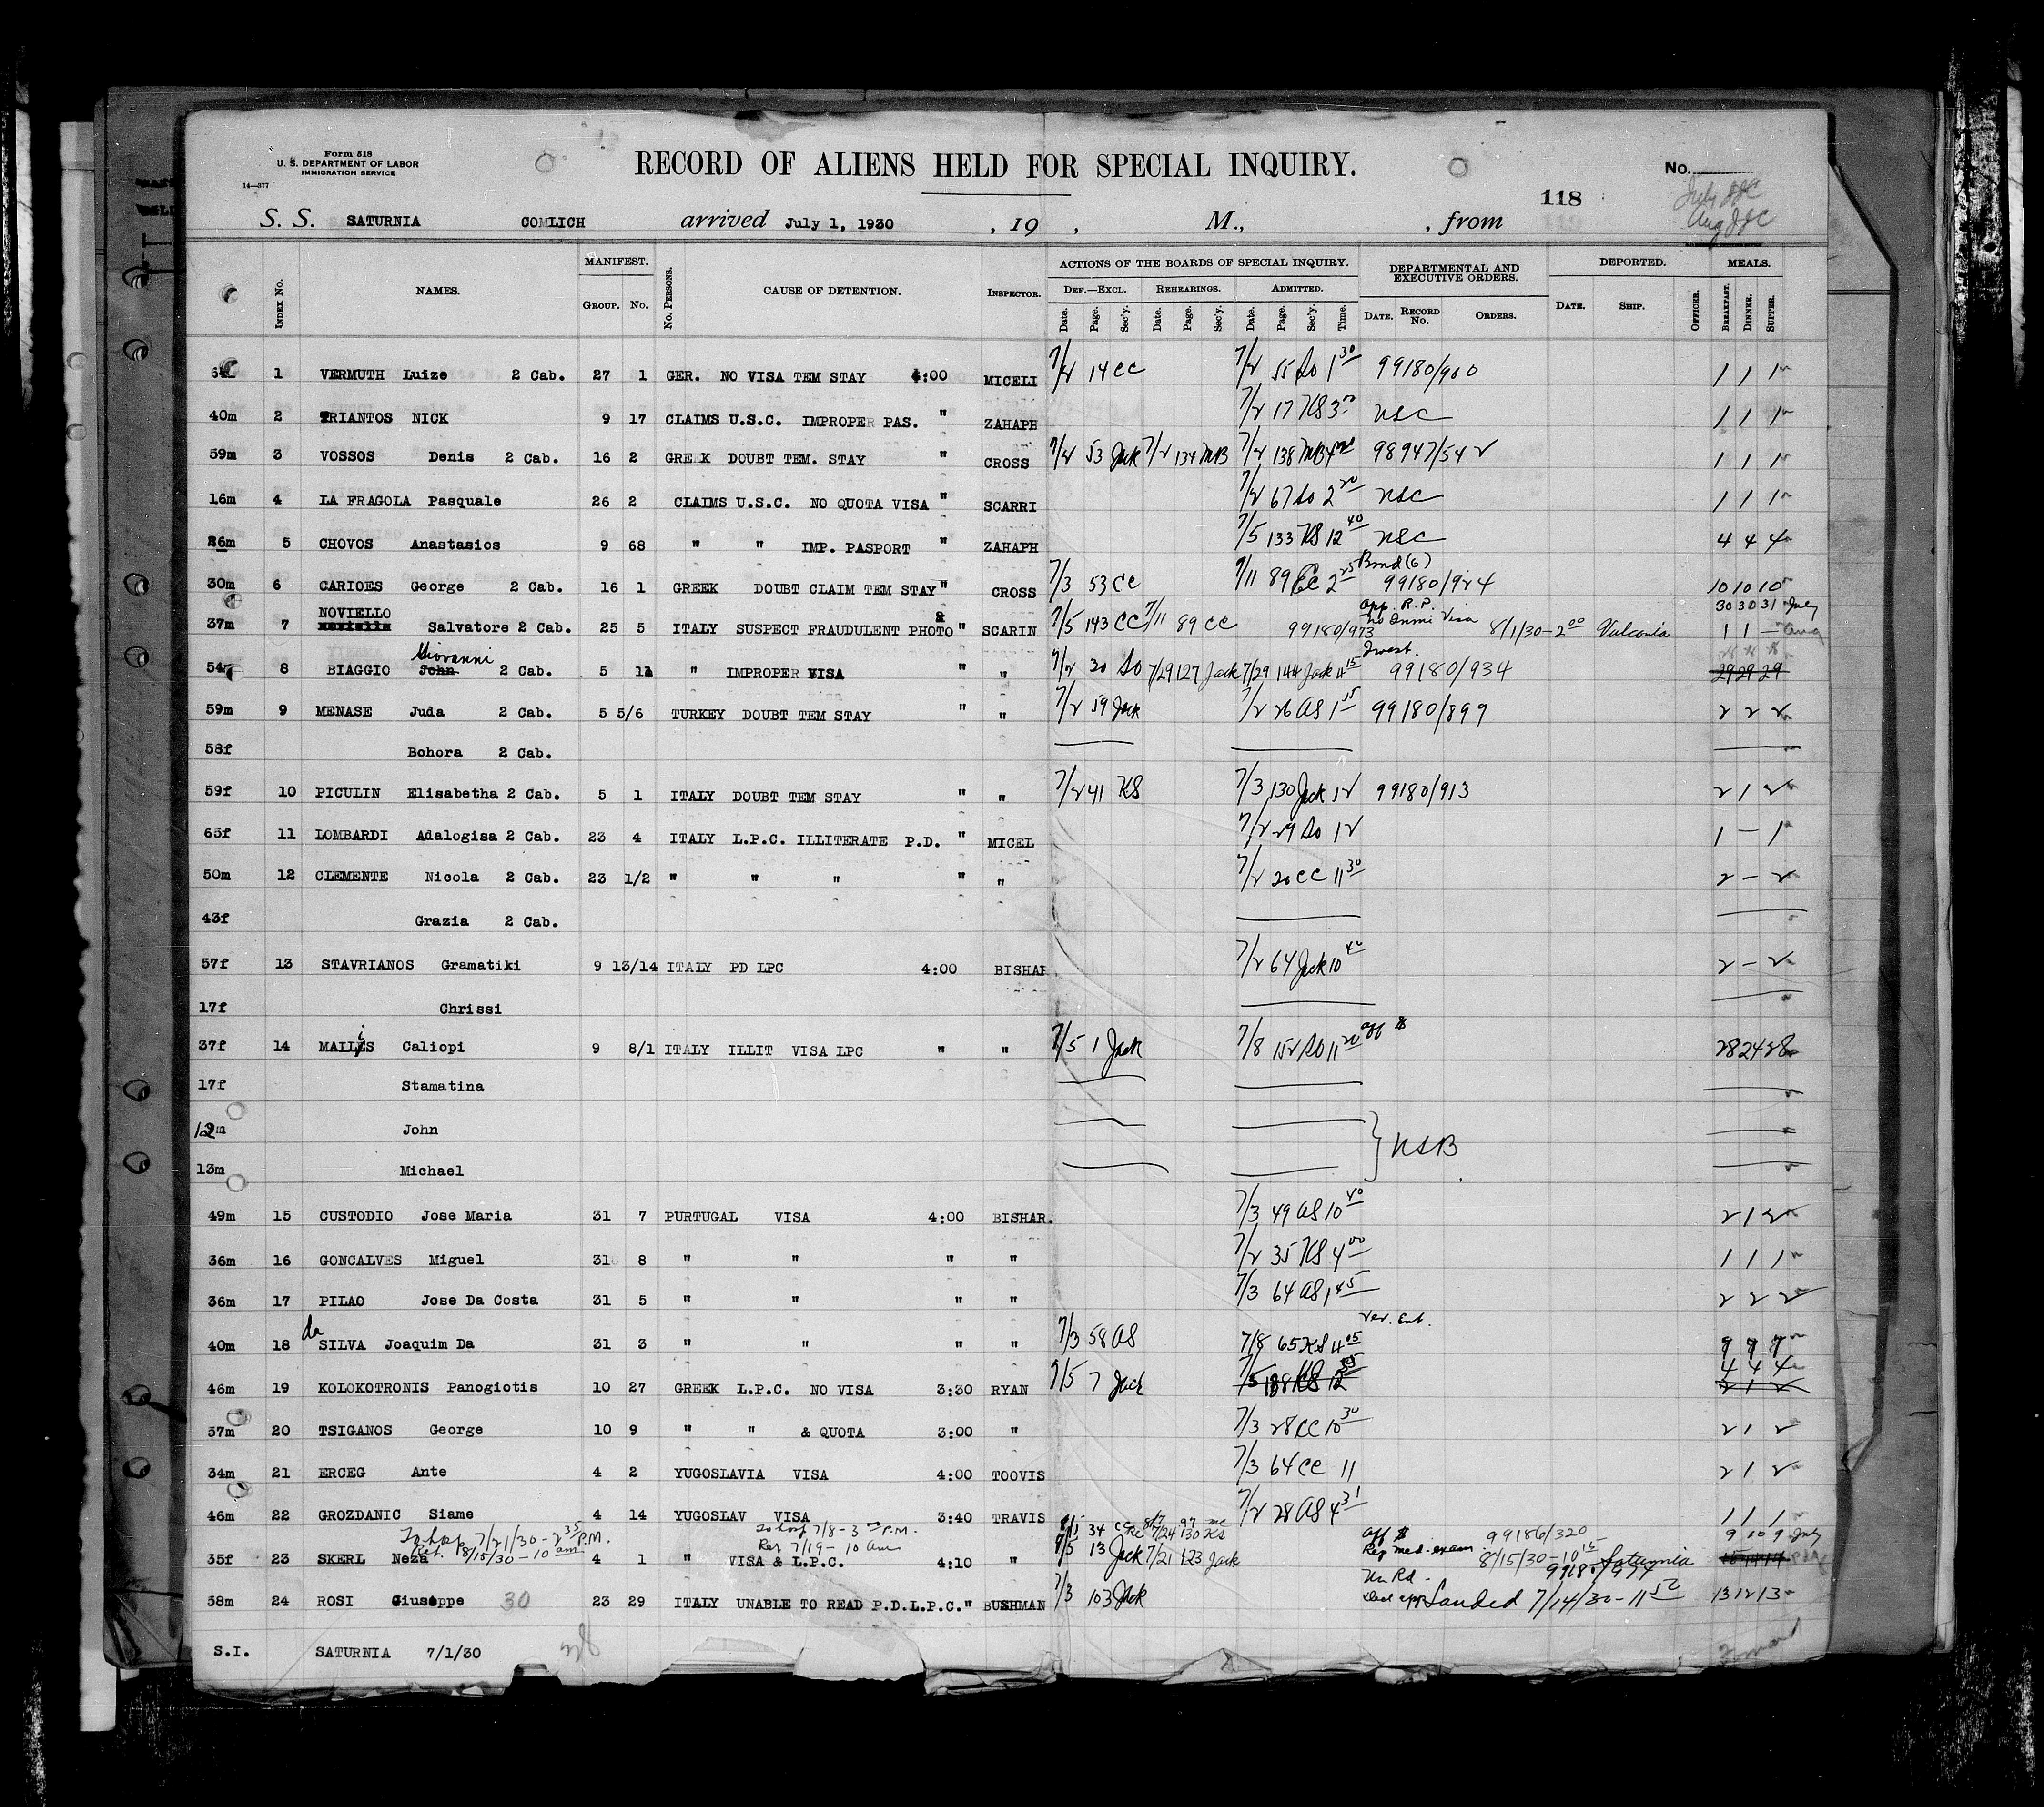 Form 518
U. S. DEPARTMENT OF LABOR
IMMIGRATION SERVICE
14—377
RECORD OF ALIENS HELD FOR SPECIAL INQUIRY.
No.
118
S. S. SATURNIA COMLICH arrived July 1, 1930 , 19 , M., , from
INDEX No. NAMES. MANIFEST. GROUP. No. No. PERSONS. CAUSE OF DETENTION. INSPECTOR. ACTIONS OF THE BOARDS OF SPECIAL INQUIRY. DEF.—EXCL. REHEARINGS. ADMITTED. DEPARTMENTAL AND EXECUTIVE ORDERS. DEPORTED. MEALS.
Date. Page. Sec'y. Date. Page. Sec'y. Date. Page. Sec'y. Time. DATE. RECORD No. ORDERS. DATE. SHIP. OFFICER. BREAKFAST. DINNER. SUPPER.
1 VERMUTH Luize 2 Cab. 27 1 GER. NO VISA TEM STAY 4:00 MICELI 7/2 14 CC 7/2 55 So 1 30 99180/900 1 1 1
40m 2 TRIANTOS NICK 9 17 CLAIMS U.S.C. IMPROPER PAS. " ZAHAPH 7/2 17 KS 3 USC 1 1 1
59m 3 VOSSOS Denis 2 Cab. 16 2 GREEK DOUBT TEM. STAY " CROSS 7/2 53 Jack 7/2 134 MB 7/2 138 MB 98947/542 1 1 1
16m 4 LA FRAGOLA Pasquale 26 2 CLAIMS U.S.C. NO QUOTA VISA " SCARRI 7/2 67 So 2 20 USC 1 1 1
36m 5 CHOVOS Anastasios 9 68 " " IMP. PASPORT " ZAHAPH 7/5 133 KS 12 40 USC 4 4 4
30m 6 CARIOES George 2 Cab. 16 1 GREEK DOUBT CLAIM TEM STAY " CROSS 7/3 53 CC 7/11 89 CC 2 25 Bond (6) 99180/924 10 10 10
NOVIELLO & App. R.P. 30 30 31 July
37m 7 Salvatore 2 Cab. 25 5 ITALY SUSPECT FRAUDULENT PHOTO " SCARIN 7/5 143 CC 7/11 89 CC 99180/973 No Immi Visa 8/1/30-2 00 Vulcania 1 1 — Aug
Giovanni
54 8 BIAGGIO John 2 Cab. 5 11 " IMPROPER VISA " " 7/2 20 So 7/29 127 Jack 7/29 144 Jack 4 15 99180/934 29 29 29
59m 9 MENASE Juda 2 Cab. 5 5/6 TURKEY DOUBT TEM STAY " " 7/2 59 Jack 7/2 26 AS 1 15 99180/899 2 2 2
58f Bohora 2 Cab.
59f 10 PICULIN Elisabetha 2 Cab. 5 1 ITALY DOUBT TEM STAY " " 7/2 41 KS 7/3 130 Jack 12 99180/913 2 1 2
65f 11 LOMBARDI Adalogisa 2 Cab. 23 4 ITALY L.P.C. ILLITERATE P.D. " MICEL 7/2 29 So 12 1 — 1
50m 12 CLEMENTE Nicola 2 Cab. 23 1/2 " " " " " 7/2 20 CC 11 30 2 — 2
43f Grazia 2 Cab.
57f 13 STAVRIANOS Gramatiki 9 13/14 ITALY PD LPC 4:00 BISHAR 7/2 64 Jack 10 40 2 — 2
17f Chrissi
37f 14 MAILIS Caliopi 9 8/1 ITALY ILLIT VISA LPC " " 7/5 1 Jack 7/8 152 So 11 20 aff $ 28 24 28
17f Stamatina
12m John
USB
13m Michael
49m 15 CUSTODIO Jose Maria 31 7 PURTUGAL VISA 4:00 BISHAR. 7/3 49 AS 10 40 2 1 2
36m 16 GONCALVES Miguel 31 8 " " " " 7/2 35 KS 4 00 1 1 1
36m 17 PILAO Jose Da Costa 31 5 " " " " 7/3 64 AS 1 45 2 2 2
da ver. Ent.
40m 18 SILVA Joaquim Da 31 3 " " " " 7/3 58 AS 7/8 65 KS 4 05 9 9 9
46m 19 KOLOKOTRONIS Panogiotis 10 27 GREEK L.P.C. NO VISA 3:30 RYAN 7/5 7 Jack 4 4 4
57m 20 TSIGANOS George 10 9 " " & QUOTA 3:00 " 7/3 28 CC 10 30 2 1 2
34m 21 ERCEG Ante 4 2 YUGOSLAVIA VISA 4:00 TOOVIS 7/3 64 CC 11 2 1 2
46m 22 GROZDANIC Siame 4 14 YUGOSLAV VISA 3:40 TRAVIS 7/2 28 AS 4 31 1 1 1
To hosp 7/21/30-2 35 P.M. To hosp 7/8-3 P.M. 34 CC 8/7 97 7/24 130 KS aff $ 99186/320 9 10 9 July
Ret. 8/15/30-10 am Ret 7/19-10 am Rep med. exam
35f 23 SKERL Neza 4 1 " VISA & L.P.C. 4:10 " 7/5 13 Jack 7/21 123 Jack 8/15/30-10 15 Saturnia
99180/974
58m 24 ROSI Giuseppe 30 23 29 ITALY UNABLE TO READ P.D.L.P.C. " BUSHMAN 7/3 103 Jack Landed 7/14/30-11 50 13 12 13
S.I. SATURNIA 7/1/30